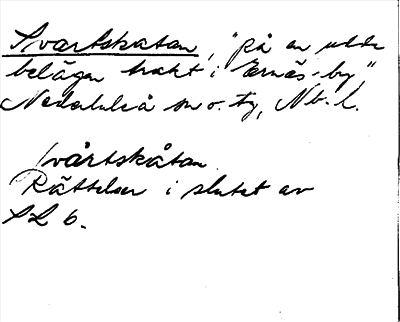 Svartskatan, "på en udde
belägen trakt i Ernäs-by",
Nederluleå sn o. tg, Nb. l.
Svårtskåtan
Rättelser i slutet av
SL 6.